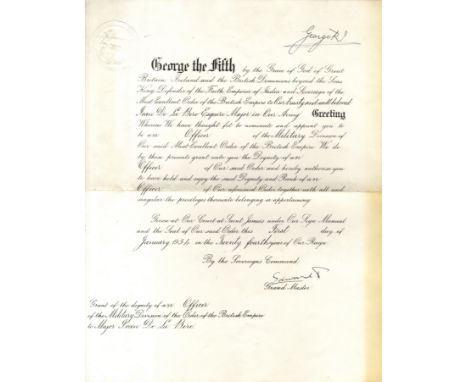 George R.I.
George the Fifth by the Grace of God of Great
Britain, Ireland and the British Dominions beyond the Seas
King, Defender of the Faith, Emperor of India and Sovereign of the
Most Excellent Order of the British Empire to Our trusty and well beloved
Ivan De Le Bere Esquire Major in Our Army Greeting
Whereas We have thought fit to nominate and appoint you to
be an Officer of the Military Division of
Our said Most Excellent Order of the British Empire We do
by these presents grant unto you the Dignity of an
Officer of Our said Order and hereby authorise you
to have hold and enjoy the said Dignity and Rank of an
Officer of Our aforesaid Order together with all and
singular the privileges thereunto belonging or appertaining.
Given at Our Court at Saint James's under Our Sign Manual
and the Seal of Our said Order this First day of
January 1934 in the Twenty fourth year of Our Reign.
By the Sovereign's Command.
Edward P
Grand Master
Grant of the dignity of an Officer
of the Military Division of the Order of the British Empire
to Major Ivan De Le Bere